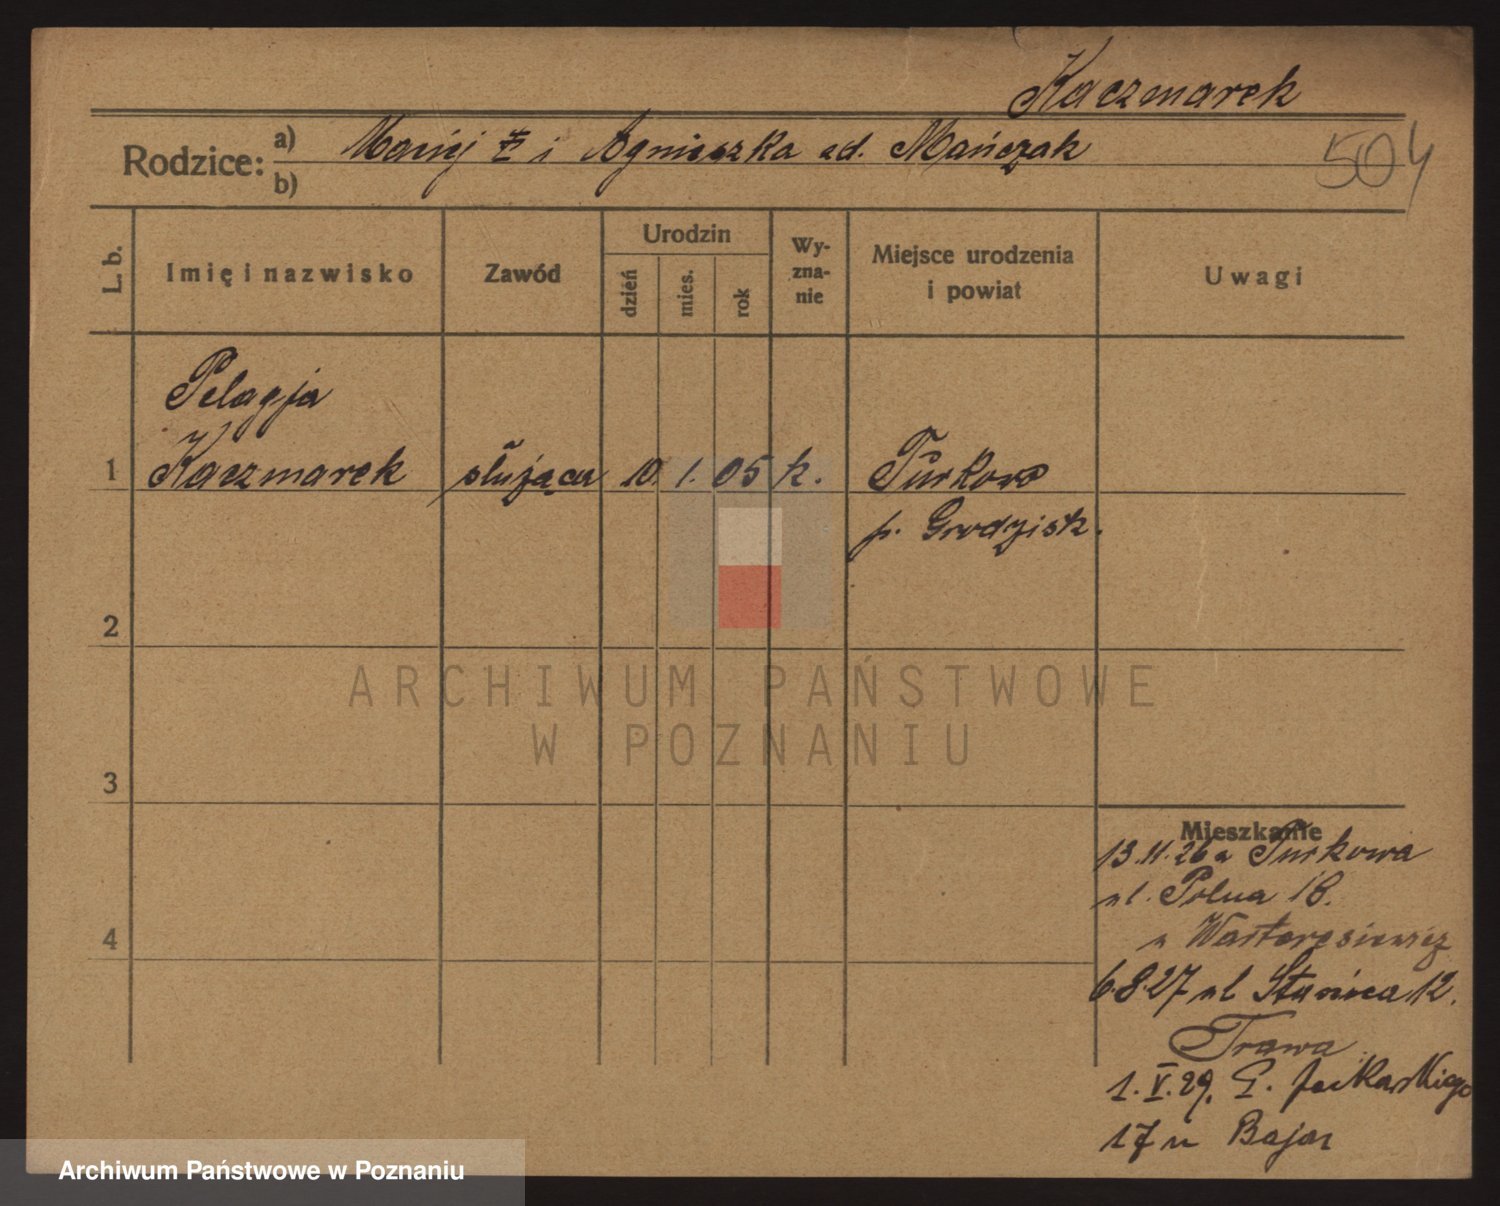 Kaczmarek
504
Rodzice: a) Maciej i Agnieszka zd. Mańczak
b)
L. b.
Imię i nazwisko
Zawód
Urodzin
dzień
mies.
rok
Wy-
zna-
nie
Miejsce urodzenia
i powiat
Uwagi
Pelagja
1 Kaczmarek służąca 10. 1. 05 k. Turkowo
p. Grodzisk.
2
3
4
Mieszkanie
13.11.26 z Turkowa
ul. Polna 18.
6.8.27 ul 12.
Trawa
1.V.29.
17 u Bajer
ARCHIWUM PAŃSTWOWE
W POZNANIU
Archiwum Państwowe w Poznaniu